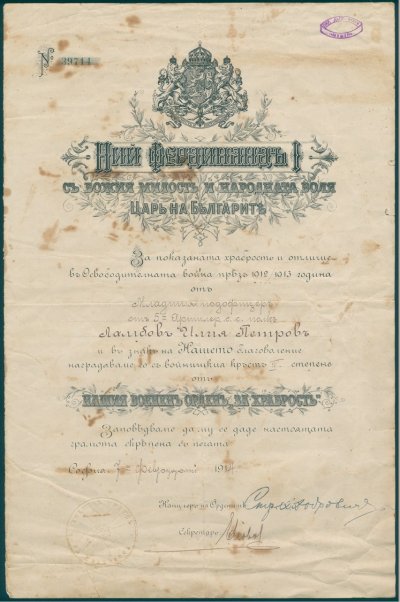 № 39711
Ний Фердинандъ I
съ Божия милость и народната воля
Царь на Българитѣ
За показаната храбрость и отличие
въ Освободителната война прѣзъ 1912-1913 година
отъ
Младшия подофицеръ
отъ 5й Артилер. с. с. полкъ
Лалувовъ Илия Петровъ
и въ знакъ на Нашето благоволение
наградаваме го съ войнишкия кръстъ степень
отъ
НАШИЯ ВОЕНЕНЪ ОРДЕНЪ "ЗА ХРАБРОСТЬ"
Заповѣдваме да му се даде настоящата
грамота скрѣпена съ печата
София, 7й Февруарий 1914
Канцлеръ на Ордена:
Секретарь: